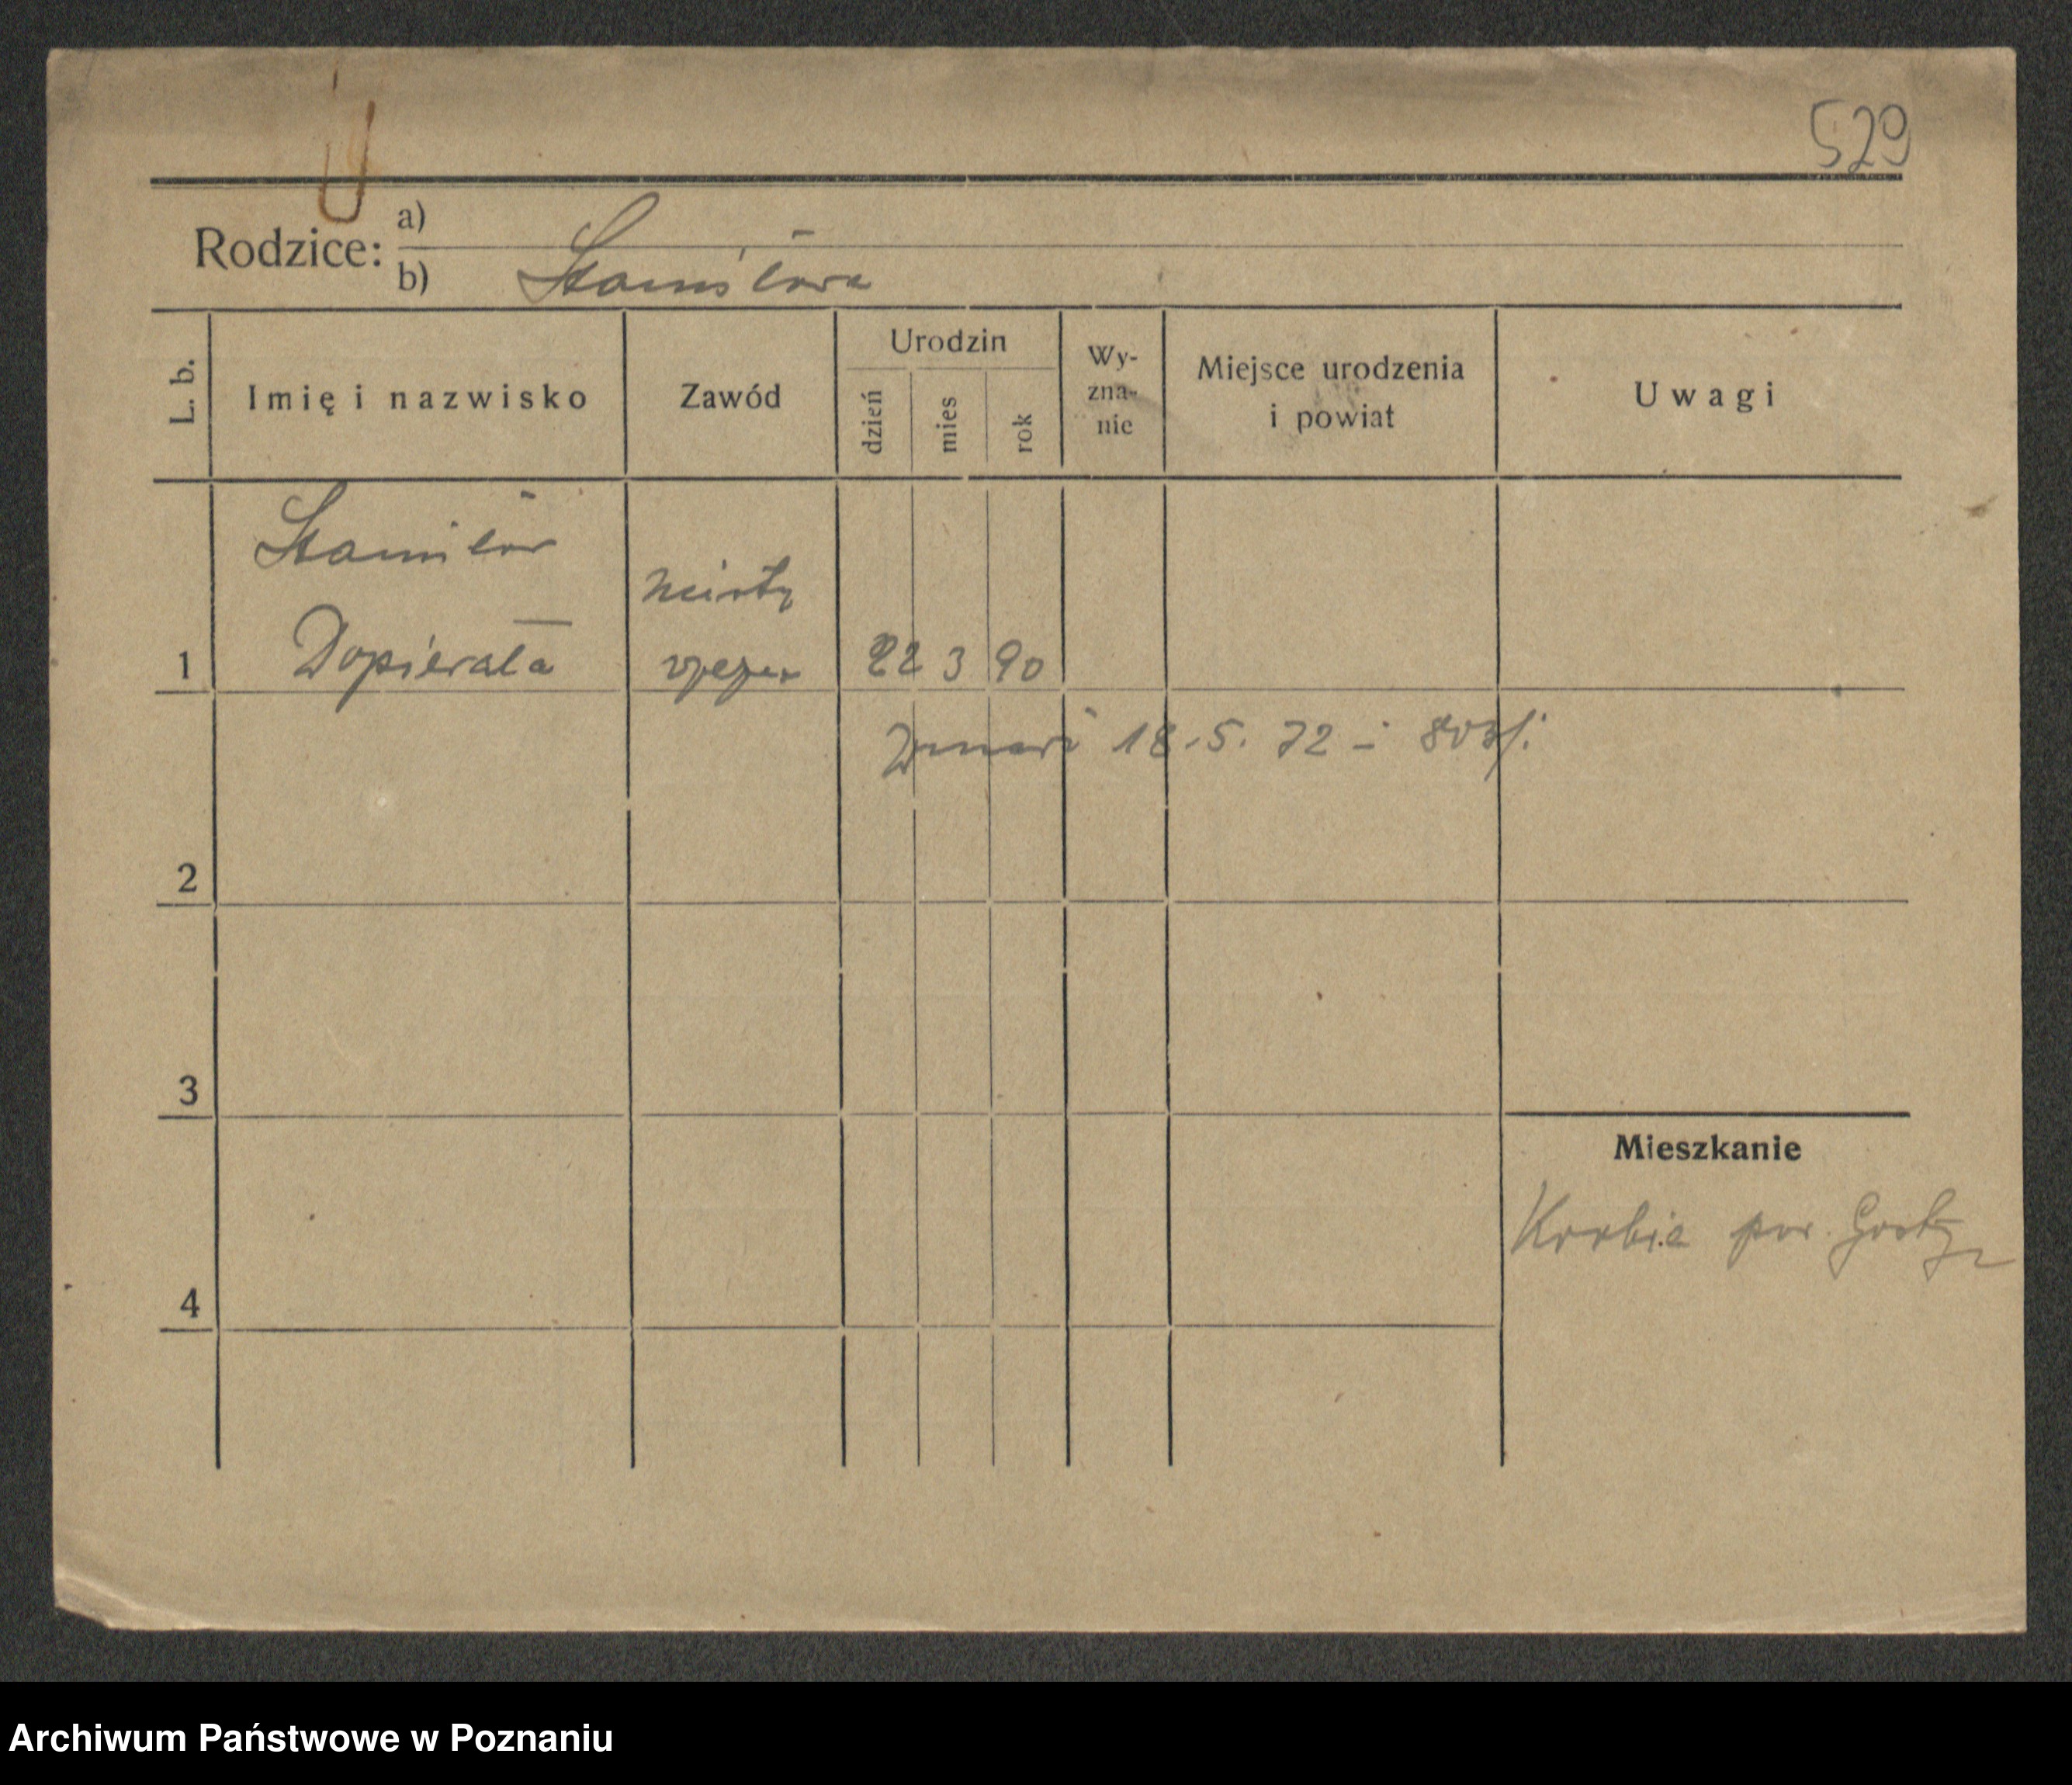 529
Rodzice:
a)
b) Stanisława
L. b.
Imię i nazwisko
Zawód
Urodzin
dzień
mies
rok
Wy-
zna-
nie
Miejsce urodzenia
i powiat
Uwagi
Stanisław
1 Dopierała 22 3 90
Zmarł 18.5.72
2
3
Mieszkanie
Krobia pow. Gostyń
4
Archiwum Państwowe w Poznaniu